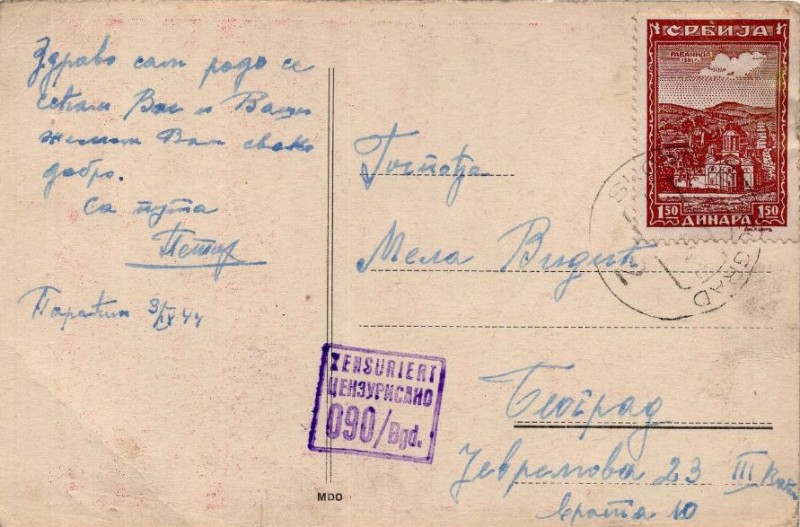 Здраво сам радо се
сећам Вас и Ваших
желим Вам свако
добро.
Са пута
Петар
Параћин 3/IX 44
СРБИЈА
РАВАНИЦА
1381 г.
1 50 ДИНАРА 1 50
GRAD
2
Госпођа
Мела Видић
Београд
Јевремова 23 III
врата 10
ZENSURIERT
ЦЕНЗУРИСАНО
090/Bgd.
MDO